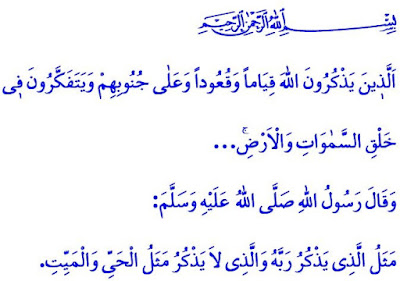 بِسْمِ اللهِ الرَّحْمٰنِ الرَّحِيمِ
اَلَّذ۪ينَ يَذْكُرُونَ اللهَ قِيَاماً وَقُعُوداً وَعَلٰى جُنُوبِهِمْ وَيَتَفَكَّرُونَ ف۪ي
خَلْقِ السَّمٰوَاتِ وَالْاَرْضِۚ...
وَقَالَ رَسُولُ اللهِ صَلَّى اللهُ عَلَيْهِ وَسَلَّمَ:
مَثَلُ الَّذِي يَذْكُرُ رَبَّهُ وَالَّذِي لاَ يَذْكُرُ مَثَلُ الْحَيِّ وَالْمَيِّتِ.